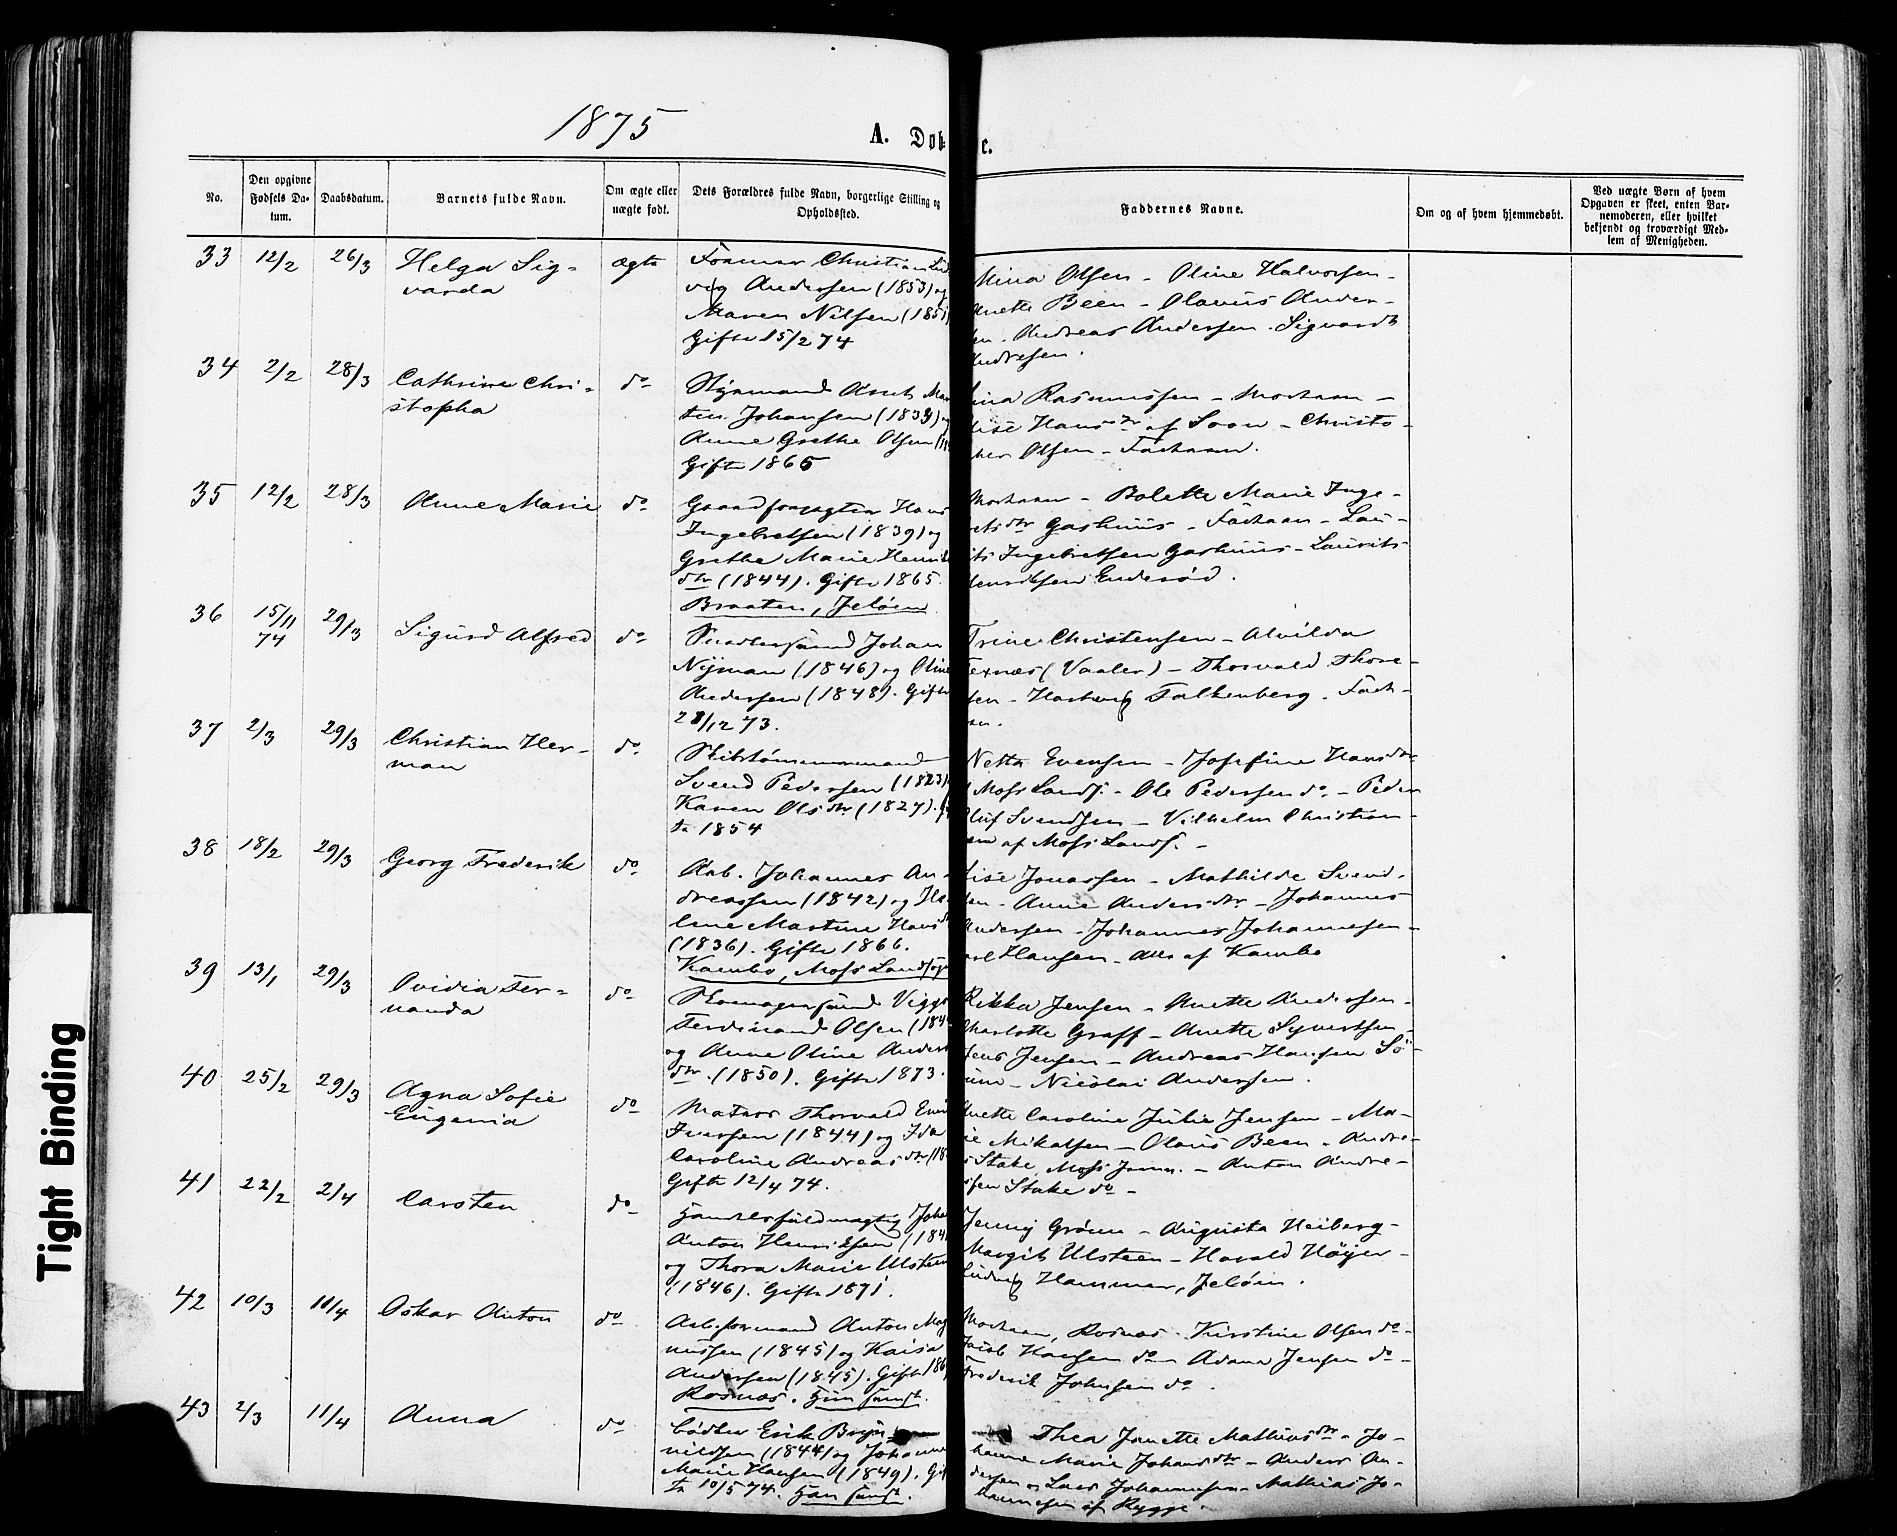 1875
A. Døb- e.
No.
Den opgivne Fødsels Da-tum.
Daabsdatum.
Barnets fulde Navn.
Om ægte eller uægte født.
Dets Forældres fulde Navn, borgerlige Stilling og Opholdssted.
Faddernes Navne.
Om og af hvem hjemmedøbt.
Ved uægte Børn af hvem Opgaven er skeet, enten Bar-nemoderen, eller hvilket bekjendt og troværdigt Med-lem af Menigheden.
33 12/2 26/3 Helga Sig-
varda
ægte
Christian Lud
vig Andersen (1853) og
Maren Nilsen (1851)
Gifte 15/2 74
Mina Olsen - Oline Halvorsen -
Anette Been - Olavus Ander-
en. Andreas Andersen. Sigvardt
Andresen.
34 2/2 28/3 Cathrine Chri-
stopha
do
Styrmand Anth Mar
tin Johansen (1839) og
Anne Grethe Olsen
Gifte 1865
ina Rasmussen - Modraen -
lise Hansdtr af Soon - Christo-
her Olsen - Fadraen.
35 12/2 28/3 Anne Marie do
Gaardforpagter Hans
Ingebretsen (1839) og
Grethe Marie Henrik
dtr (1844). Gifte 1865.
Braaten, Jeløen
Modraen - Bolette Marie Inge-
rets dtr Gashuus - Fadraen - Lau-
its Ingebretsen Gashuus - Laurits
Henriksen Enderød.
36 15/11 74 29/3 Sigurd Alfred do
Snedkersvend Johan
Nijman (1846) og Oline
Andersen (1848). Gifte
28/12 73.
Trine Christensen - Alvilda
exnæs (Vaaler) - Thorvald Thore-
sen - Hartvig Falkenberg. Fadr-
en.
37 2/3 29/3 Christian Her-
man
do
Skibstømmermand
Svend Pedersen (1823)
Karen Olsdtr (1827). Gif
te 1854
Netta Evensen - Josefine Hansdtr
Moss Lands. - Ole Pedersen do. - Peder
Oluf Svendsen - Vilhelm Christian-
sen af Moss Lands. -
38 18/2 29/3 Georg Frederik do
Arb. Johannes An-
dreassen (1842) og He
lene Martine Hans
(1836). Gifte 1866.
Kambo, Moss Landsogn
Lise Jonassen - Mathilde Svend-
en - Anne Andersdtr - Johannes
Andersen - Johannes Johannesen -
arl Hansen - Alle af Kambo
39 13/1 29/3 Ovidia Fer-
nanda
do
Skomagersvend Viggo
Ferdinand Olsen (184
og Anne Oline Anders
dtr. (1850). Gifte 1873.
Rikka Jensen - Anette Andersen -
Charlotte Graff - Anette Syvertsen -
Jens Jensen - Andreas Hansen Sö-
um - Nicolai Andersen.
40 25/2 29/3 Agna Sofie
Eugenia
do
Matros Thorvald Emil
Iversen (1844) og Ida
Caroline Andreasdtr (18
Gifte 12/4 74.
Anette Caroline Julie Jensen - Ma-
ie Mikalsen - Olaus Been - Andre-
s Stake, Moss - Anton Andre-
sen Stake do -
41 22/2 2/4 Carsten do
Handelsfuldmægtig Joha
Anton Henriksen (184
og Thora Marie Ulsteen
(1846). Gifte 1871.
Jenny Grønn - Augusta Heiberg -
Margit Ulsteen - Harald Höyer -
Ludvig Hammer, Jeløen.
42 10/3 11/4 Oskar Anton do
Arb.formand Anton Mag
nussen (1845) og Kaisa
Andersen (1845). Gifte 186
Rosnæs.
Modraen, Rosnæs - Kirstine Olsen do -
Jacob Hansen do - Adam Jensen do -
Frederik Johnsen do.
43 2/3 11/4 Anna do
Bødker Erik Bryn-
nildsen (1844) og Johanne
Marie Hansen (1849). Gif
te 10/5 74.
Thea Janette Mathiasdtr - Jo-
hanne Marie Johansdtr - Anders An-
dersen - Lars Johannesen - Mathias Jo-
hannesen af Rygge.
Tight Binding